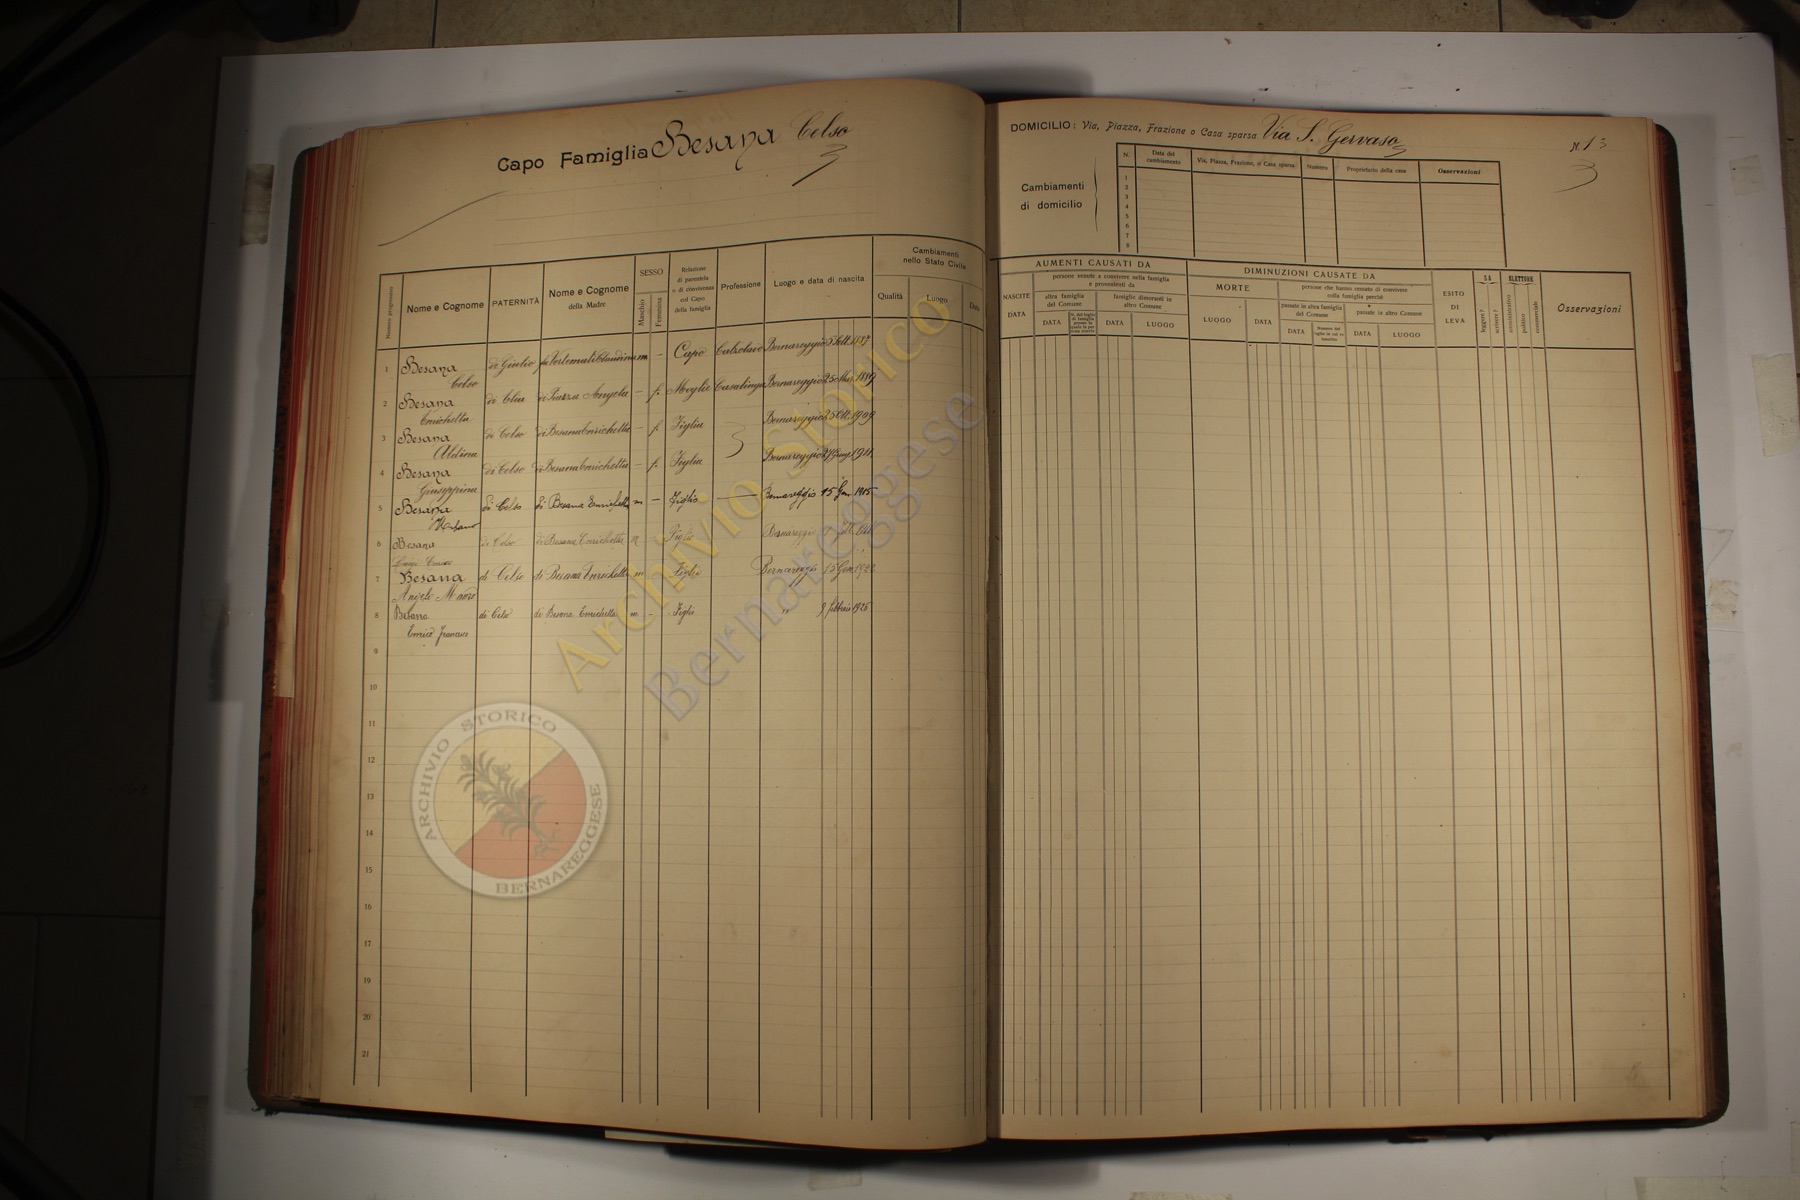 Capo Famiglia Besana Celso
3
Numero progressivo
Nome e Cognome
PATERNITÀ
Nome e Cognome
della Madre
SESSO
Maschio
Femmina
Relazione
di parentela
o di convivenza
col Capo
della famiglia
Professione
Luogo e data di nascita
Cambiamenti
nello Stato Civile
Qualità
Luogo
Data
1 Besana di Giulio m - Capo Calzolaio Bernareggio 1887
Celso
2 Besana di Piazza Angela - f. Moglie Casalinga Bernareggio 25 1889
Enrichetta
3 Besana di Celso di Besana Enrichetta - f. Figlia Bernareggio 25 Ott. 1909
Aldina
4 Besana di Celso di Besana Enrichetta - f. Figlia Bernareggio 1911
Giuseppina
5 Besana di Celso di Besana Enrichetta m - Figlio Bernareggio 15 Gen 1915
6 Besana di Celso di Besana Enrichetta Figlio Bernareggio
7 Besana di Celso di Besana Enrichetta m Figlio Bernareggio 15 Gen. 1922
Angelo
8 Besana di Celso di Besana Enrichetta m - Figlio " 9 febbraio 1925
Enrico Francesco
9
10
11
12
13
14
15
16
17
18
19
20
21
3
DOMICILIO: Via, Piazza, Frazione o Casa sparsa Via S. Gervaso
N. 13
3
Cambiamenti
di domicilio
N.
Data del
cambiamento
Via, Piazza, Frazione, o Casa sparsa
Numero
Proprietario della casa
Osservazioni
1
2
3
4
5
6
7
8
AUMENTI CAUSATI DA
NASCITE
DATA
persone venute a convivere nella famiglia
e provenienti da
altra famiglia
del Comune
DATA
famiglie dimoranti in
altro Comune
DATA
LUOGO
DIMINUZIONI CAUSATE DA
MORTE
LUOGO
DATA
persone che hanno cessato di convivere
colla famiglia perchè
passate in altra famiglia
del Comune
DATA
passate in altro Comune
DATA
LUOGO
ESITO
DI
LEVA
SA
leggere?
scrivere?
ELETTORE
amministrativo
politico
commerciale
Osservazioni
Archivio Storico
Bernareggese
ARCHIVIO STORICO
BERNAREGGESE